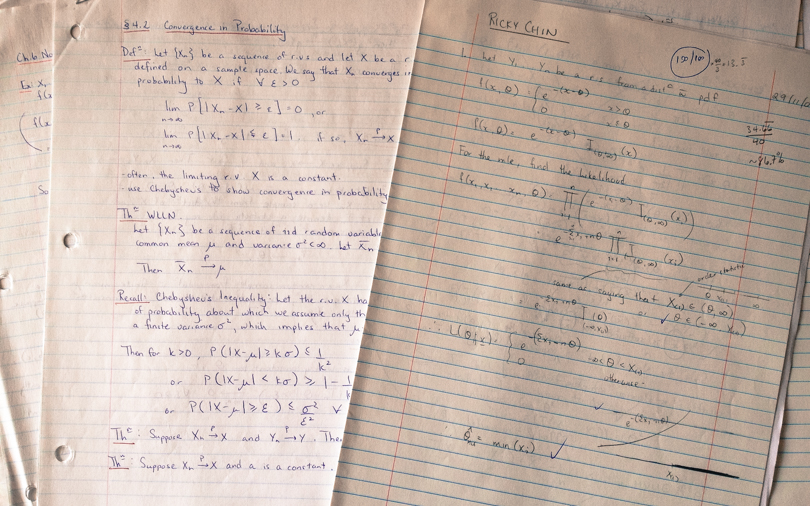 Chib. No
Ex: Xn
f(x
f(x
So
§4.2 Convergence in Probability
Defⁿ: Let {Xn} be a sequence of r.v.s and let X be a r
defined on a sample space. We say that Xn converges in
probability to X if ∀ ε>0
lim P[|Xn-X| ≥ ε] = 0, or
n→∞
lim P[|Xn-X| < ε] = 1 if so, Xn →ᵖ X
n→∞
-often, the limiting r.v X is a constant.
-use Chebyshevs to show convergence in probability
Thᵐ WLLN.
Let {Xn} be a sequence of iid random variable
common mean μ and variance σ²<∞. Let X̄n
Then X̄n →ᵖ μ
Recall: Chebyshev's Inequality: Let the r.v. X ha
of probability about which we assume only th
a finite variance σ², which implies that μ
Then for k>0, P(|X-μ| ≥ kσ) ≤ 1/k²
or P(|X-μ| < kσ) ≥ 1 - 1/k
or P(|X-μ| ≥ ε) ≤ σ²/ε² ∀
Thᵐ: Suppose Xn →ᵖ X and Yn →ᵖ Y. The
Thᵐ: Suppose Xn →ᵖ X and a is a constant.
RICKY CHIN
29/11/
40
1. Let Y₁ ... Yn be a r.s. from a distⁿ w̄ pdf
f(x,θ) = { e^-(x-θ) x>θ
0 x≤θ
f(x,θ) = e^-(x-θ) I(θ,∞)(x)
For the mle, find the likelihood
f(x₁,x₂...xn,θ) = ∏ (e^-(x-θ) I(θ,∞)(x))
= e^-Σxi+nθ ∏ I(θ,∞)(xi)
order statistic
same as saying that X(1) ∈ (θ,∞)
or ✓ θ ∈ (-∞, X(1))
= e^-Σxi+nθ I(θ)
(-∞,x(1))
∴ L(θ|x) = { e^-(Σxi-nθ) -∞<θ<X(1)
0 otherwise.
e^-(Σxi-nθ)
∴ θ̂ = min(xi) ✓
X(1)